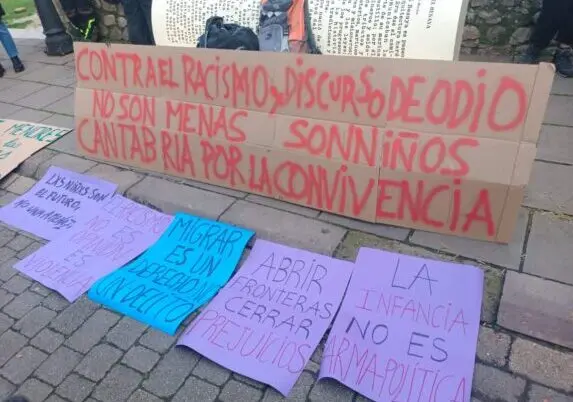 CONTRA EL RACISMO y DISCURSO DE ODIO
NO SON MENAS SON NIÑOS
CANTABRIA POR LA CONVIVENCIA
MENORES
LAS NIÑAS SON
EL FUTURO,
NO UNA
NO ES
VIOLENCIA
MIGRAR
ES UN
DERECHO NO
UN DELITO
ABRIR
FRONTERAS
CERRAR
PREJUICIOS
LA
INFANCIA
NO ES
ARMA POLÍTICA